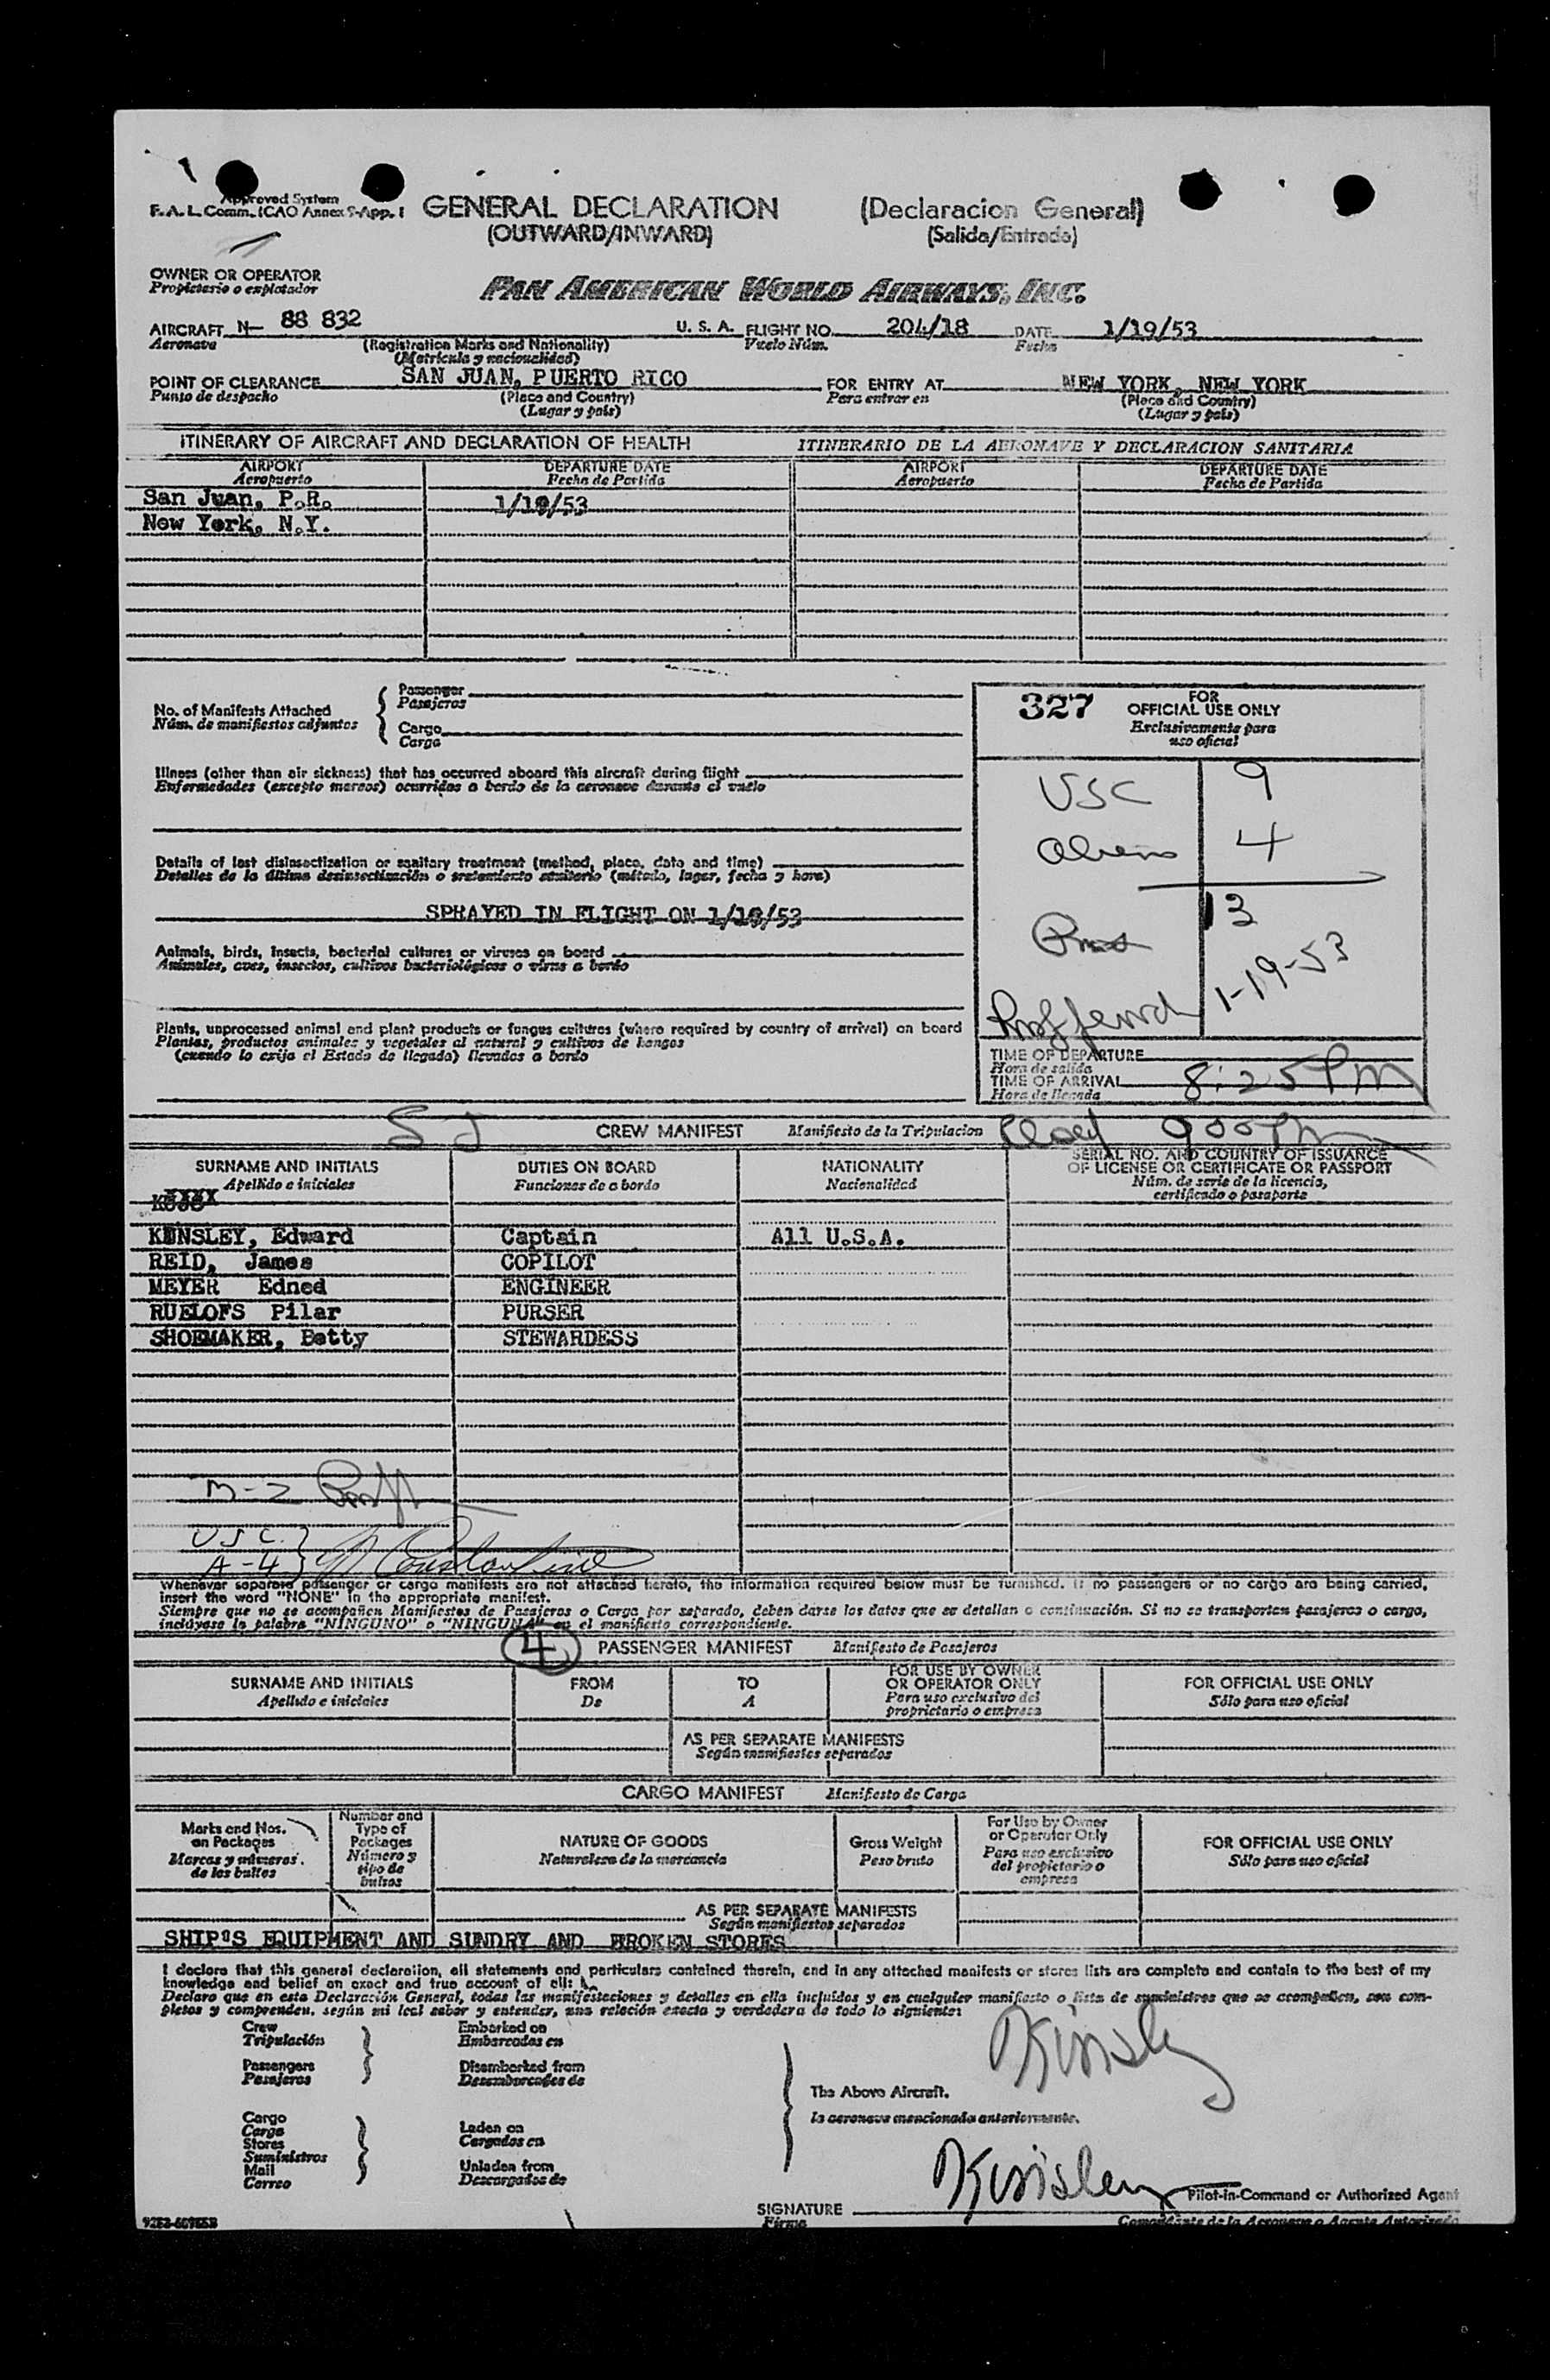 Approved System
F.A.L. Comm. ICAO Annex 9-App. 1
GENERAL DECLARATION (Declaracion General)
(OUTWARD/INWARD) (Salida/Entrada)
OWNER OR OPERATOR
Propietario o explotador
PAN AMERICAN WORLD AIRWAYS, INC.
AIRCRAFT N- 88 832 U. S. A. FLIGHT NO. 204/18 DATE 1/19/53
Aeronave (Registration Marks and Nationality) Vuelo Núm. Fecha
(Matrícula y nacionalidad)
POINT OF CLEARANCE SAN JUAN, PUERTO RICO FOR ENTRY AT NEW YORK, NEW YORK
Punto de despacho (Place and Country) Para entrar en (Place and Country)
(Lugar y país) (Lugar y país)
ITINERARY OF AIRCRAFT AND DECLARATION OF HEALTH ITINERARIO DE LA AERONAVE Y DECLARACION SANITARIA
AIRPORT DEPARTURE DATE AIRPORT DEPARTURE DATE
Aeropuerto Fecha de Partida Aeropuerto Fecha de Partida
San Juan, P.R. 1/19/53
New York, N.Y.
No. of Manifests Attached
Núm. de manifiestos adjuntos
Passenger
Pasajeros
Cargo
Carga
327 FOR
OFFICIAL USE ONLY
Exclusivamente para
uso oficial
USC 9
Aliens 4
13
1-19-53
Illness (other than air sickness) that has occurred aboard this aircraft during flight
Enfermedades (excepto mareos) ocurridas a bordo de la aeronave durante el vuelo
Details of last disinsectization or sanitary treatment (method, place, date and time)
Detalles de la última desinsectización o tratamiento sanitario (método, lugar, fecha y hora)
SPRAYED IN FLIGHT ON 1/19/53
Animals, birds, insects, bacterial cultures or viruses on board
Animales, aves, insectos, cultivos bacteriológicos o virus a bordo
Plants, unprocessed animal and plant products or fungus cultures (where required by country of arrival) on board
Plantas, productos animales y vegetales al natural y cultivos de hongos
(cuando lo exija el Estado de llegada) llevados a bordo
TIME OF DEPARTURE
Hora de salida
TIME OF ARRIVAL 8:25 PM
Hora de llegada
SJ CREW MANIFEST Manifiesto de la Tripulacion 900 PM
SURNAME AND INITIALS DUTIES ON BOARD NATIONALITY SERIAL NO. AND COUNTRY OF ISSUANCE
OF LICENSE OR CERTIFICATE OR PASSPORT
Apellido e iniciales Funciones de a bordo Nacionalidad Núm. de serie de la licencia,
certificado o pasaporte
KINSLEY, Edward Captain All U.S.A.
REID, James COPILOT
MEYER Edned ENGINEER
RUELOFS Pilar PURSER
SHOEMAKER, Betty STEWARDESS
M-2
USC
A-4
Whenever separate passenger or cargo manifests are not attached hereto, the information required below must be furnished. If no passengers or no cargo are being carried,
insert the word "NONE" in the appropriate manifest.
Siempre que no se acompañen Manifiestos de Pasajeros o Carga por separado, deben darse los datos que se detallan a continuación. Si no se transportan pasajeros o carga,
inclúyase la palabra "NINGUNO" o "NINGUNA" en el manifiesto correspondiente.
4 PASSENGER MANIFEST Manifiesto de Pasajeros
SURNAME AND INITIALS FROM TO FOR USE BY OWNER
OR OPERATOR ONLY FOR OFFICIAL USE ONLY
Apellido e iniciales De A Para uso exclusivo del
proprietario o empresa Sólo para uso oficial
AS PER SEPARATE MANIFESTS
Según manifiestos separados
CARGO MANIFEST Manifiesto de Carga
Marks and Nos.
on Packages
Marcas y números
de los bultos
Number and
Type of
Packages
Número y
tipo de
bultos
NATURE OF GOODS
Naturaleza de la mercancía
Gross Weight
Peso bruto
For Use by Owner
or Operator Only
Para uso exclusivo
del propietario o
empresa
FOR OFFICIAL USE ONLY
Sólo para uso oficial
AS PER SEPARATE MANIFESTS
Según manifiestos separados
SHIP'S EQUIPMENT AND SUNDRY AND BROKEN STORES
I declare that this general declaration, all statements and particulars contained therein, and in any attached manifests or stores lists are complete and contain to the best of my
knowledge and belief an exact and true account of all:
Declaro que en esta Declaración General, todas las manifestaciones y detalles en ella incluídos y en cualquier manifiesto o lista de suministros que se acompañen, son com-
pletos y comprenden, según mi leal saber y entender, una relación exacta y verdadera de todo lo siguiente:
Crew
Tripulación
Passengers
Pasajeros
Embarked on
Embarcados en
Disembarked from
Desembarcados de
Cargo
Carga
Stores
Suministros
Mail
Correo
Laden on
Cargados en
Unladen from
Descargados de
The Above Aircraft.
la aeronave mencionada anteriormente.
Kinsley
Kinsley
SIGNATURE Pilot-in-Command or Authorized Agent
Firma Comandante de la Aeronave o Agente Autorizado